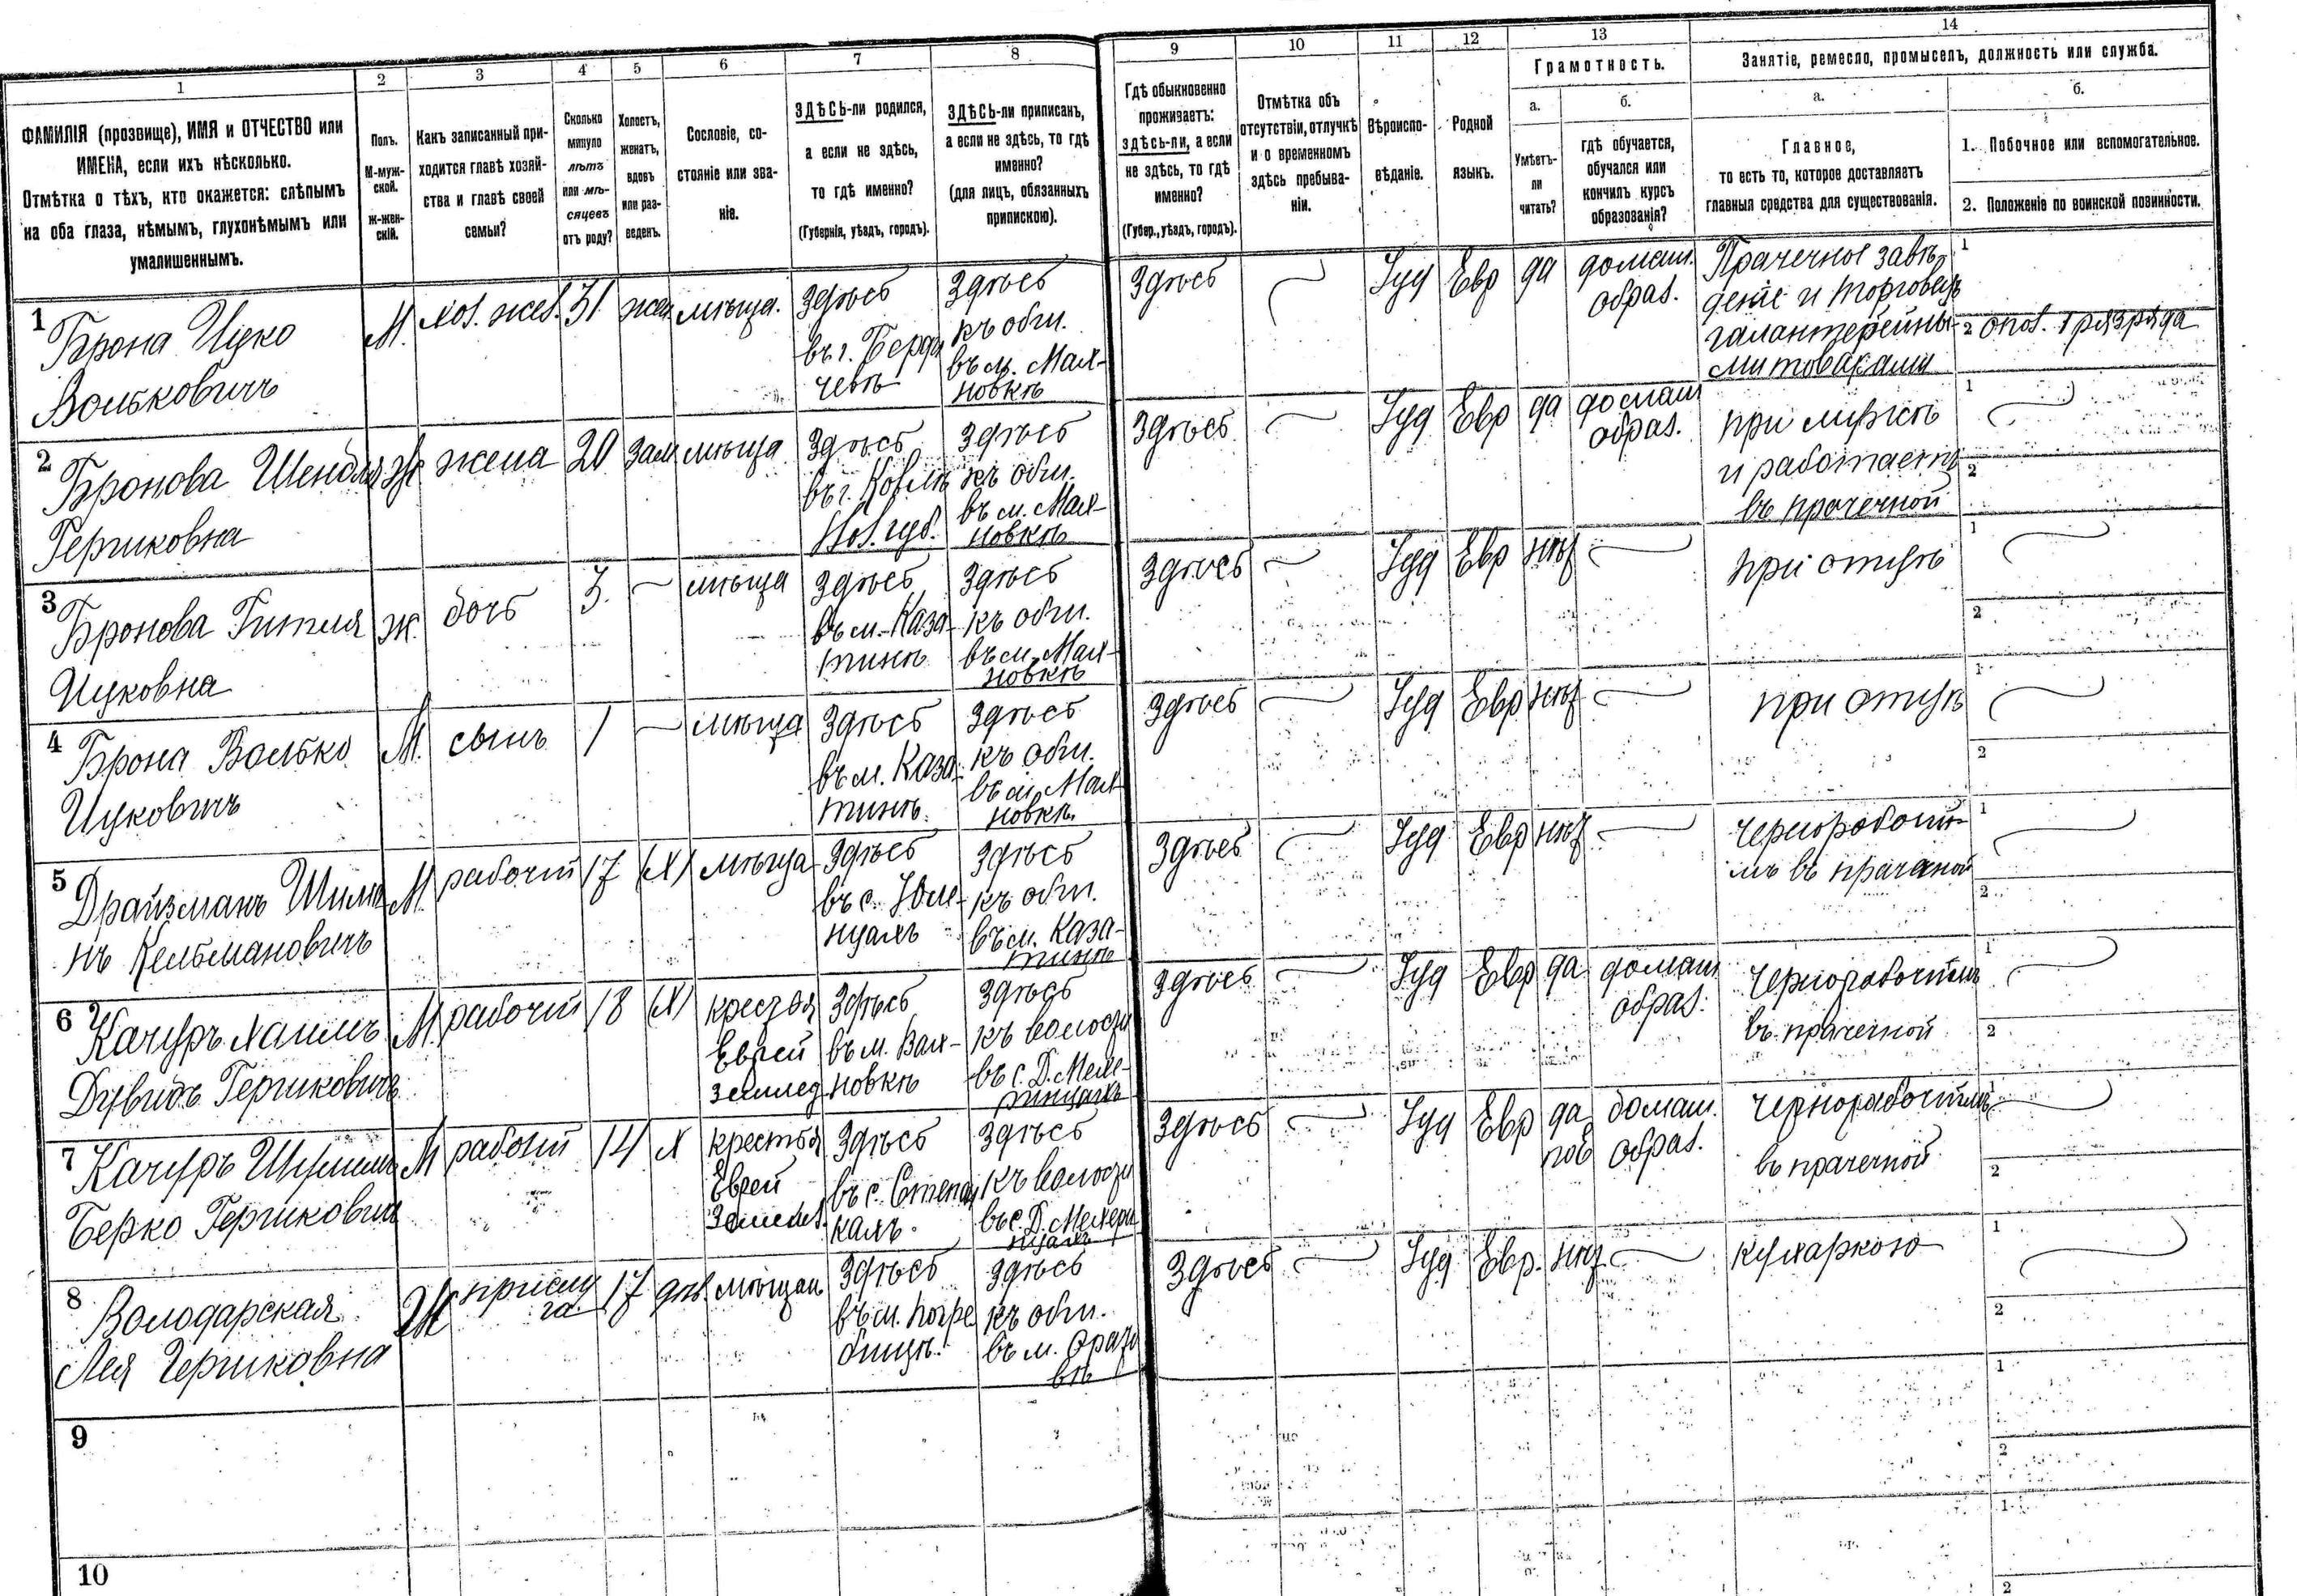 1
2
3
4
5
6
7
8
9
10
11
12
13
14
ФАМИЛІЯ (прозвище), ИМЯ и ОТЧЕСТВО или
ИМЕНА, если ихъ нѣсколько.
Отмѣтка о тѣхъ, кто окажется: слѣпымъ
на оба глаза, нѣмымъ, глухонѣмымъ или
умалишеннымъ.
Полъ.
М-муж-
ской.
ж-жен-
скій.
Какъ записанный при-
ходится главѣ хозяй-
ства и главѣ своей
семьи?
Сколько
минуло
лѣтъ
или мѣ-
сяцевъ
отъ роду?
Холостъ,
женатъ,
вдовъ
или раз-
веденъ.
Сословіе, со-
стояніе или зва-
ніе.
ЗДѢСЬ-ли родился,
а если не здѣсь,
то гдѣ именно?
(Губернія, уѣздъ, городъ).
ЗДѢСЬ-ли приписанъ,
а если не здѣсь, то гдѣ
именно?
(для лицъ, обязанныхъ
припискою).
Гдѣ обыкновенно
проживаетъ:
здѣсь-ли, а если
не здѣсь, то гдѣ
именно?
(Губер., уѣздъ, городъ).
Отмѣтка объ
отсутствіи, отлучкѣ
и о временномъ
здѣсь пребыва-
ніи.
Вѣроиспо-
вѣданіе.
Родной
языкъ.
Грамотность.
а.
Умѣетъ-
ли
читать?
б.
гдѣ обучается,
обучался или
кончилъ курсъ
образованія?
Занятіе, ремесло, промыселъ, должность или служба.
а.
Главное,
то есть то, которое доставляетъ
главныя средства для существованія.
б.
1. Побочное или вспомогательное.
2. Положеніе по воинской повинности.
1
Брона Ицко
Вольковичъ
М.
хоз. жев. 31
жен
мѣща.
Здѣсь
въ г. Берди
чевѣ
Здѣсь
къ общ.
въ м. Мах-
новкѣ
Здѣсь
Іуд
Евр
да
домаш.
образ.
Прачечное заве
деніе и торговецъ
галантерейны
ми товарами
1
2 опол. 1 разряда
2
Бронова Шендля
Гершковна
Ж
жена
20
зам
мѣща
Здѣсь
въ г. Ковлѣ
Здѣсь
къ общ.
въ м. Мах-
новкѣ
Здѣсь
Іуд
Евр
да
домаш
образ.
при мужѣ
и работаетъ
въ прачечной
1
2
3
Бронова Гитля
Ицковна
ж.
дочь
3.
мѣща
Здѣсь
въ м. Каза-
тинѣ
Здѣсь
къ общ.
въ м. Мах-
новкѣ
Здѣсь
Іуд
Евр
нѣт
при отцѣ
1
2
4
Брона Волько
Ицковичъ
М.
сынъ
1
мѣща
Здѣсь
въ м. Каза-
тинѣ.
Здѣсь
къ общ.
въ м. Мах-
новкѣ.
Здѣсь
Іуд
Евр
нѣт
при отцѣ
1
2
5
Драйзманъ Шимо
нъ Кельмановичъ
М.
рабочій
17
(х)
мѣща
Здѣсь
Здѣсь
къ общ.
въ м. Каза-
тинѣ
Здѣсь
Іуд
Евр
нѣт
въ прачечной
1
2
6
Качуръ Хаимъ
Дувидъ Гершковичъ
М.
рабочій
18
(х)
Еврей
землед
Здѣсь
въ м. Вах-
новкѣ
Здѣсь
къ волости
Здѣсь
Іуд
Евр
да
домаш
образ.
чернорабочимъ
въ прачечной
1
2
7
Качуръ
Берко Гершкович
М
рабочій
14
х
крестья
Еврей
Здѣсь
въ с. Степан
кахъ.
Здѣсь
къ волости
Здѣсь
Іуд
Евр
да
домаш.
образ.
чернорабочимъ
въ прачечной
1
2
8
Володарская
Лея Гершковна
Ж
прислу
га
17
дѣв.
мѣщан
Здѣсь
въ м. Погре
бищѣ.
Здѣсь
къ общ.
въ м.
Здѣсь
Іуд
Евр.
нѣт
кухаркою
1
2
9
1
2
10
1
2